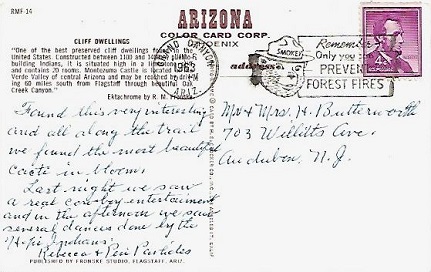 RMF-14
CLIFF DWELLINGS
"One of the best preserved cliff dwellings found in
United States. Constructed between 1100 and
building Indians, it is situated high in a limestone
and contains 20 rooms. Montezuma Castle is located
Verde Valley of central Arizona and may be reached by driv-
ing 60 miles south from Flagstaff through beautiful Oak
Creek Canyon."
Ektachrome by R. M. Fronske
Found this very interesting
and all along the trail
we found the most beautiful
cacti in bloom.
Last night we saw
a real cowboy entertainment
and in the afternoon we saw
several dances done by the
Hopi Indians.
Rebecca &
PUBLISHED BY FRONSKE STUDIO, FLAGSTAFF, ARIZ.
ARIZONA
COLOR CARD CORP.
PHOENIX
address
GRAND CANYON
ARIZ.
SMOKEY
Remember
Only you can
PREVENT
FOREST FIRES
Mr & Mrs. H. Butterworth
703 Willitts Ave.
Audubon, N. J.